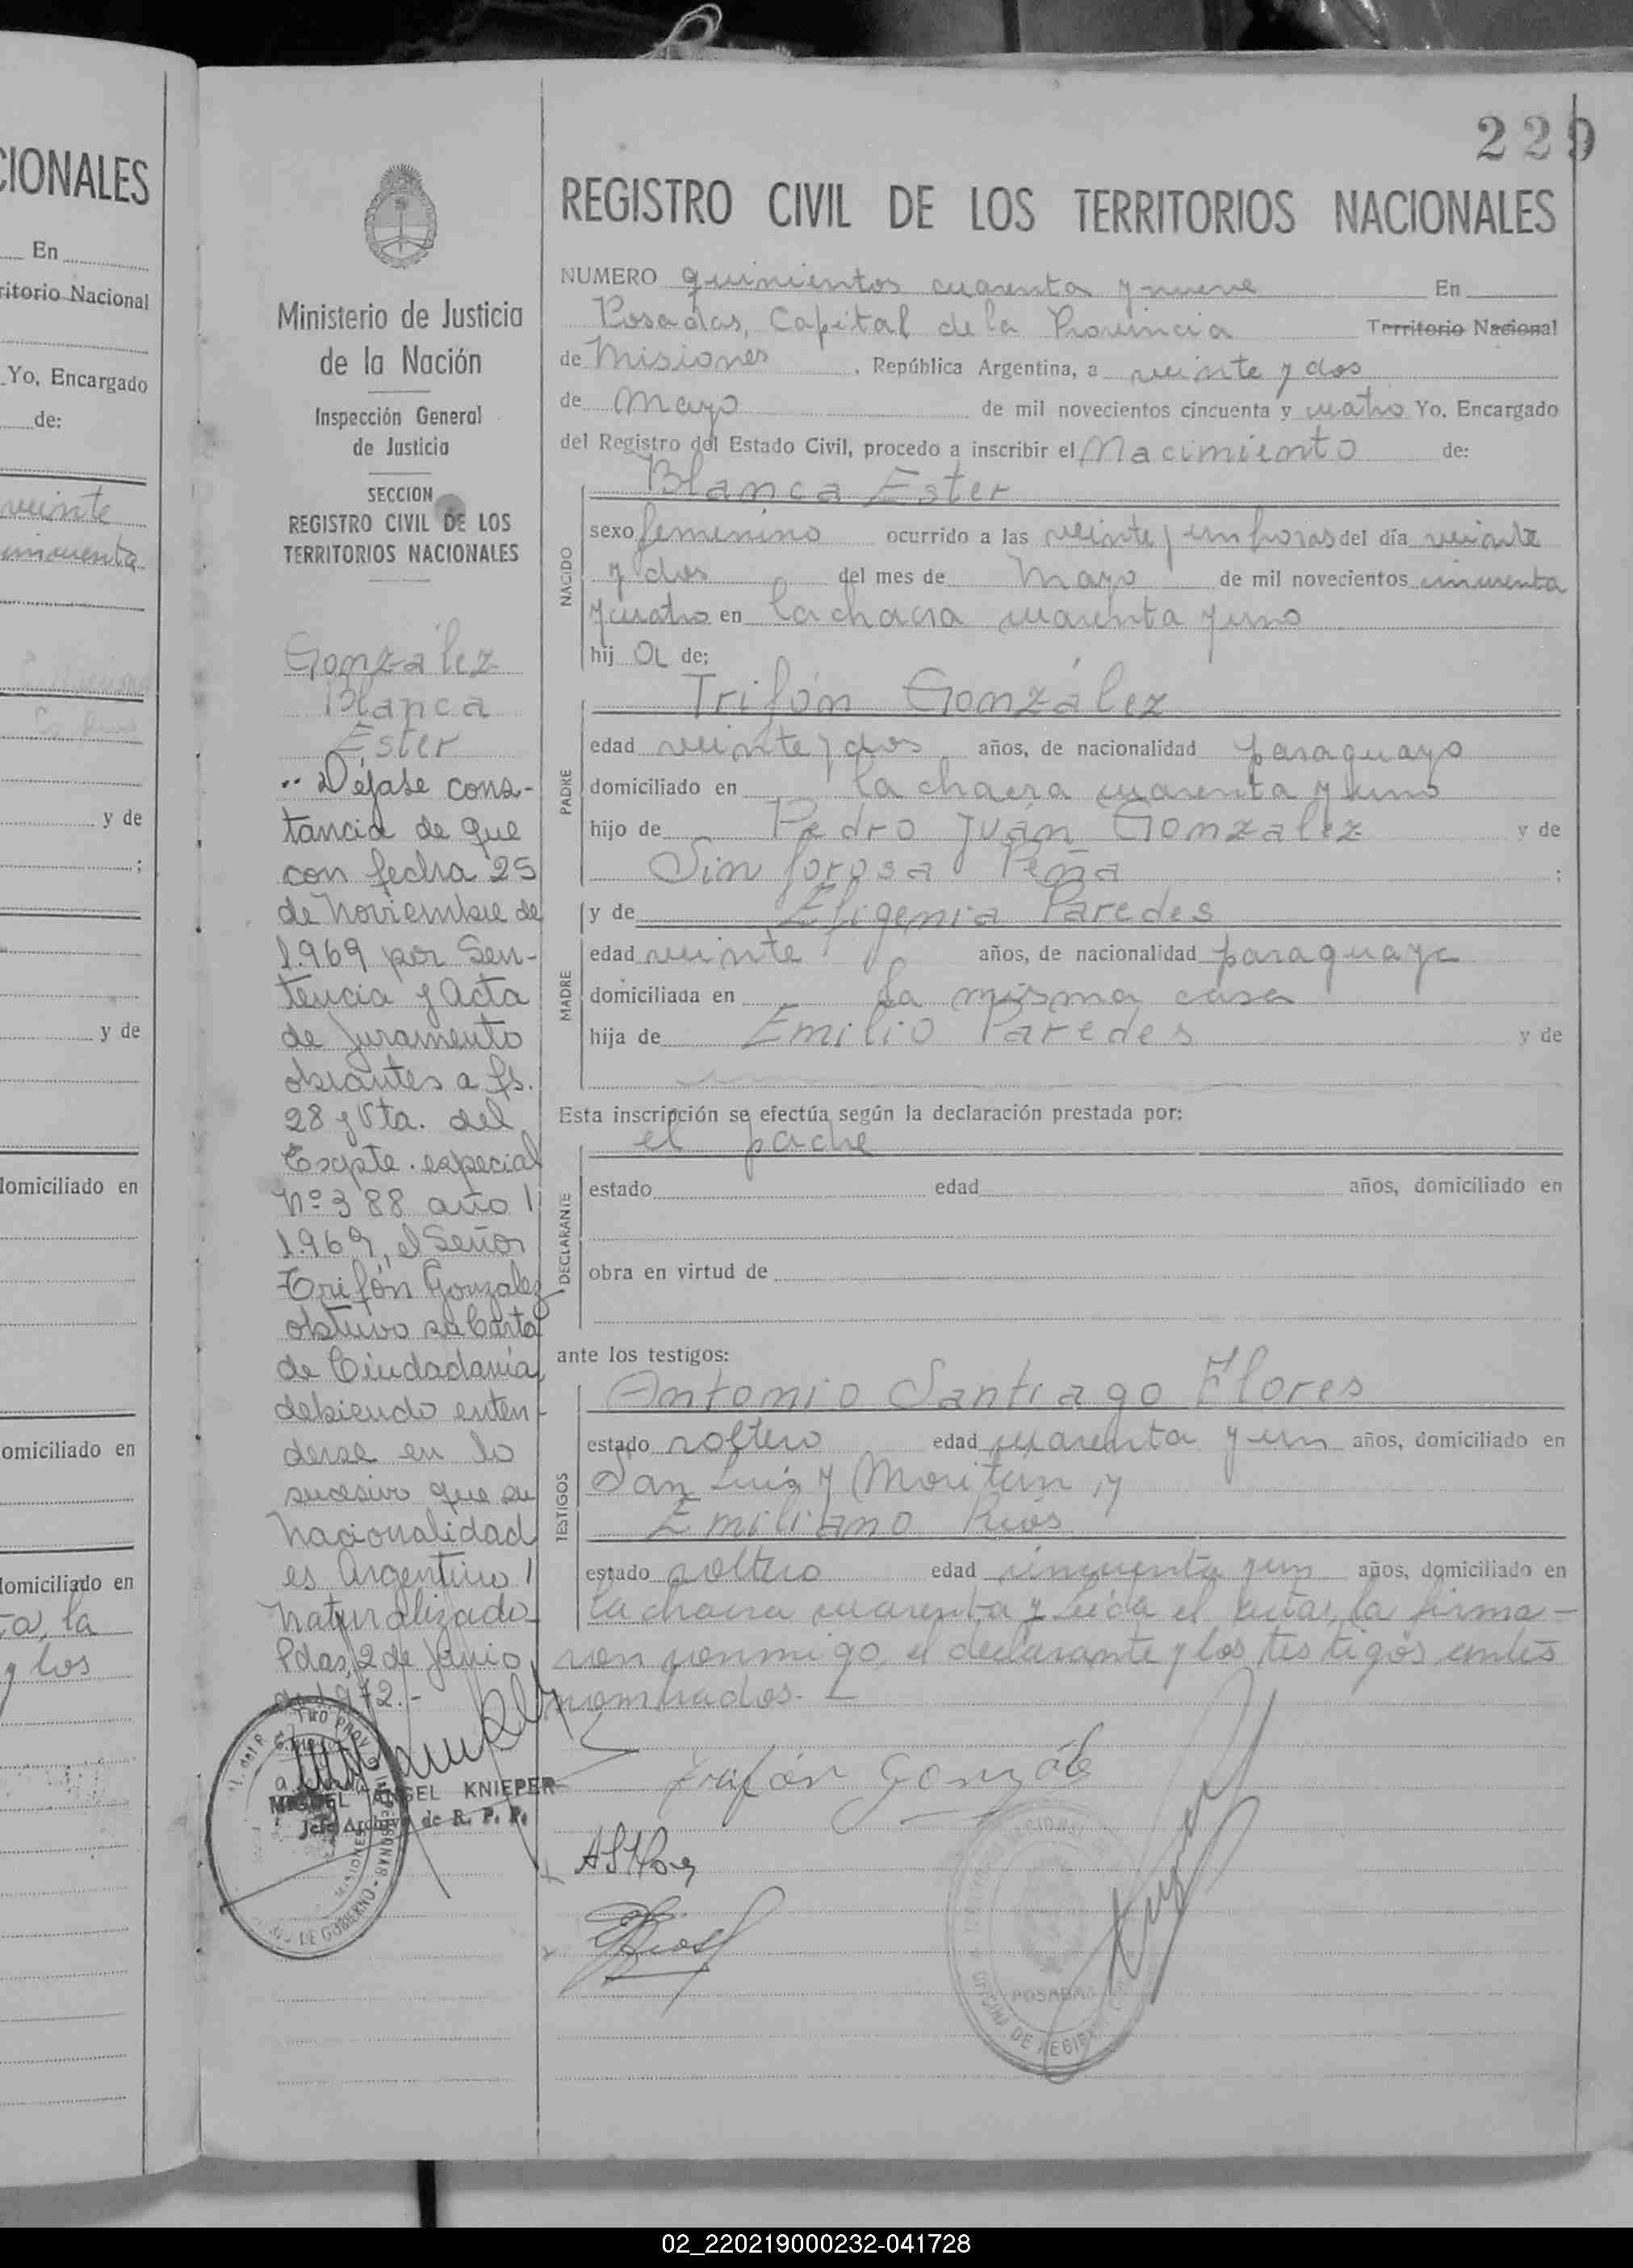 CIONALES
En
ritorio Nacional
Yo, Encargado
de:
veinte
cincuenta
y de
;
y de
domiciliado en
omiciliado en
domiciliado en
ta, la
y los
229
Ministerio de Justicia
de la Nación
Inspección General
de Justicia
SECCION
REGISTRO CIVIL DE LOS
TERRITORIOS NACIONALES
González
Blanca
Ester
Déjase cons-
tancia de que
con fecha 25
de Noviembre de
1.969 por Sen-
tencia y Acta
de Juramento
obrantes a fs.
28 y Vta. del
Expte. especial
Nº 388 año
1.969, el Señor
Trifón Gonzalez
obtuvo su Carta
de Ciudadanía,
debiendo enten-
derse en lo
sucesivo que su
Nacionalidad
es Argentino
Naturalizado
Pdas, 2 de Junio
de 1972.-
MIGUEL ANGEL KNIEPER
Jefe Archivo de R. P. P.
REGISTRO CIVIL DE LOS TERRITORIOS NACIONALES
NUMERO quinientos cuarenta y nueve En
Posadas, Capital de la Provincia Territorio Nacional
de Misiones, República Argentina, a veinte y dos
de Mayo de mil novecientos cincuenta y cuatro Yo, Encargado
del Registro del Estado Civil, procedo a inscribir el Nacimiento de:
Blanca Ester
NACIDO
sexo femenino ocurrido a las veinte y un horas del día veinte
y dos del mes de Mayo de mil novecientos cincuenta
y cuatro en la chacra cuarenta y uno
hij a de:
Trifón González
PADRE
edad veinte y dos años, de nacionalidad paraguayo
domiciliado en la chacra cuarenta y uno
hijo de Pedro Juán González y de
Sinforosa Peña ;
y de Efigenia Paredes
MADRE
edad veinte años, de nacionalidad paraguaya
domiciliada en la misma casa
hija de Emilio Paredes y de
Esta inscripción se efectúa según la declaración prestada por:
el padre
DECLARANTE
estado edad años, domiciliado en
obra en virtud de
ante los testigos:
Antonio Santiago Flores
TESTIGOS
estado soltero edad cuarenta y un años, domiciliado en
San Luis y Moritan y
Emiliano Ríos
estado soltero edad cincuenta y un años, domiciliado en
la chacra cuarenta y Leida el acta, la firma-
ron conmigo, el declarante y los testigos antes
nombrados.-
Trifón Gonzále
ASFlores
ERios
POSADAS
02_220219000232-041728